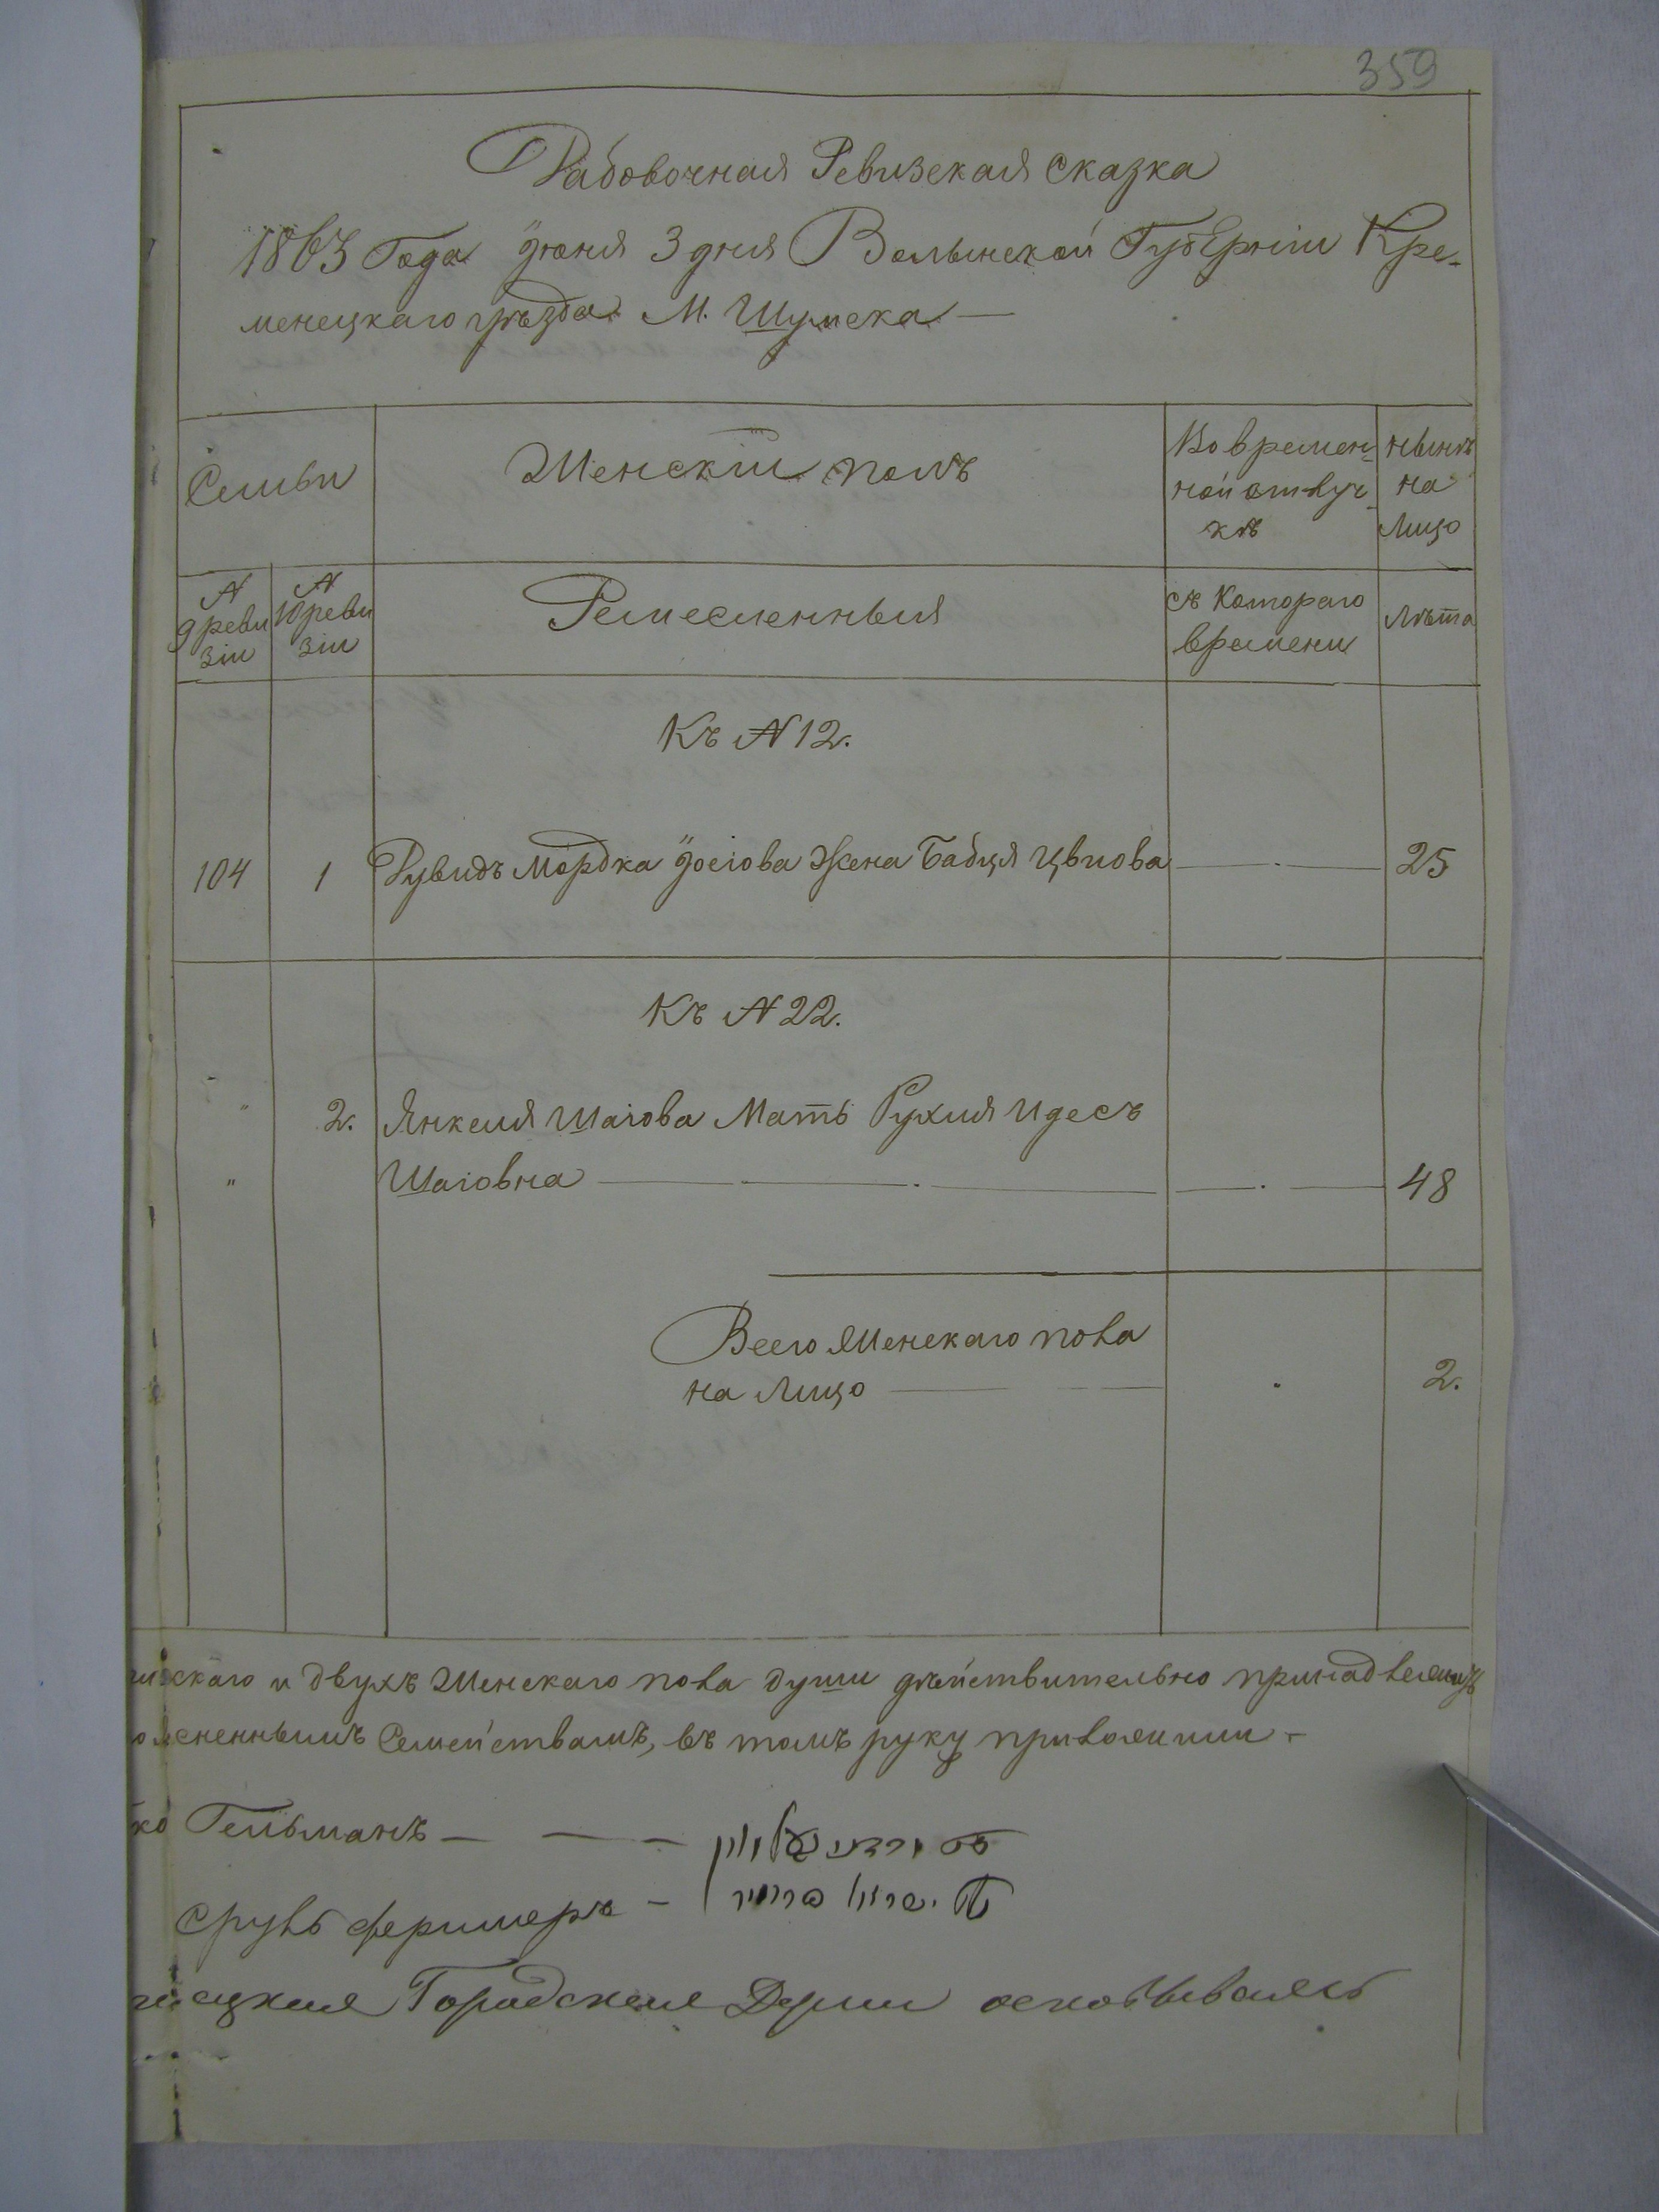 359
Рабовочная Ревизская сказка
1863 Года Іюня 3 дня Волынской Губерніи Кре-
менецкаго уѣзда М. Шумска
Семьи
Женскій полъ
Во времен-
ной отлуч-
кѣ
нынѣ
на
лицо
N
9 реви
зіи
N
10 реви
зіи
Ремесленныя
съ Котораго
времени
лѣта
Къ N 12.
104 1 Рувидъ Мордка Іосіова Жена Бабця Цвіова 25
Къ N 22.
" 2. Янкеля Шаіова Мать Рухля Идесъ
" Шаіовна 48
Всего Женскаго пола
на лицо 2.
двухъ Женскаго пола души дѣйствительно
Семействамъ, въ томъ руку приложили
Гельманъ
Сруль
Городская Дума